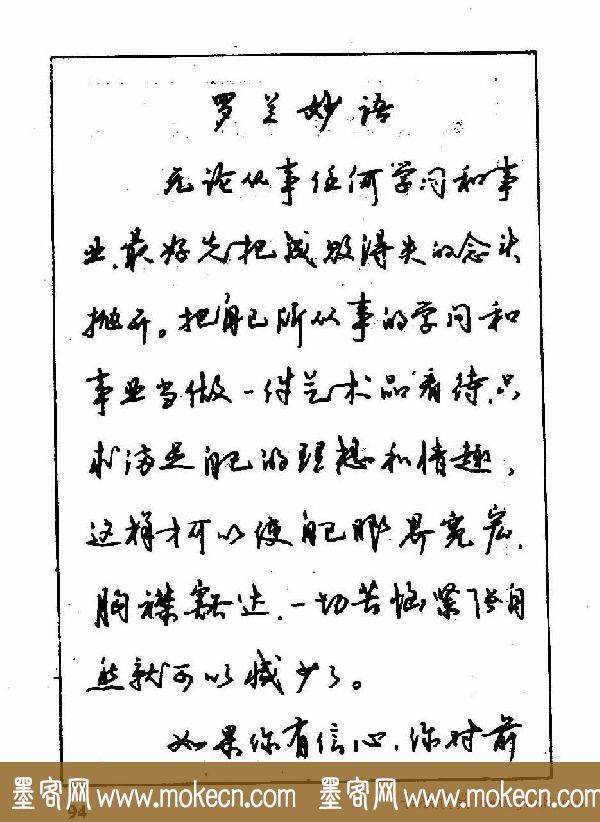 罗兰妙语
无论从事任何学问和事
业、最好先把成败得失的念头
抛开。把自己所从事的学问和
事业当做一件艺术品看待、只
求满足自己的理想和情趣，
这样才可以使自己眼界宽宏、
胸襟豁达、一切苦恼紧张自
然就可以减少了。
如果你有信心、你对前
墨客网 www.mokecn.com 墨客网 www.mokecn.com
94